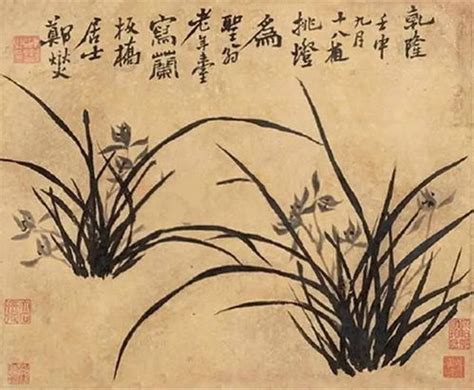 乾隆
壬申
九月
十八
挑燈
為
聖翁
老年臺
寫蘭
板橋
居士
鄭燮